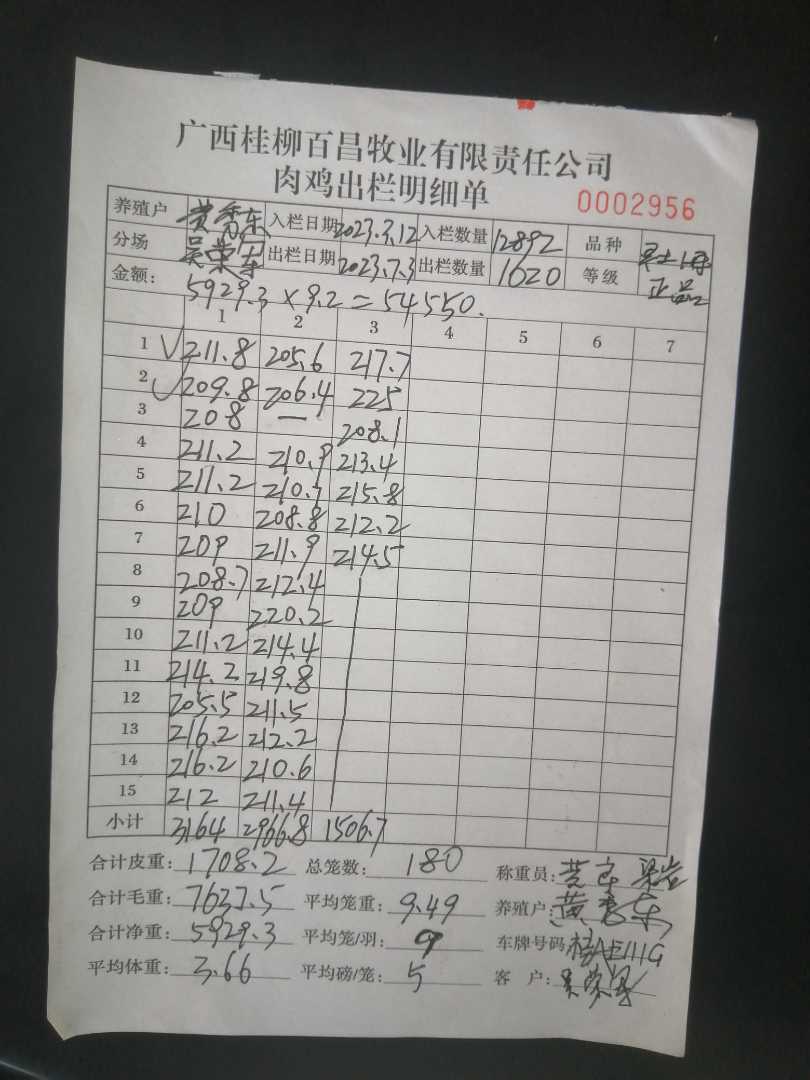 广西桂柳百昌牧业有限责任公司
肉鸡出栏明细单 0002956
养殖户 黄秀东 入栏日期 2023.3.12 入栏数量 12892 品种
分场 出栏日期 2023.7.3 出栏数量 1620 等级 正品
金额: 5929.3 × 9.2 = 54550.
1 2 3 4 5 6 7
1 √ 211.8 205.6 217.7
2 √ 209.8 206.4 225
3 208 — 208.1
4 211.2 210.9 213.4
5 211.2 210.7 215.8
6 210 208.8 212.2
7 209 211.9 214.5
8 208.7 212.4
9 209 220.2
10 211.2 214.4
11 214.2 219.8
12 205.5 211.5
13 216.2 212.2
14 216.2 210.6
15 212 211.4
小计 3164 2966.8 1506.7
合计皮重: 1708.2 总笼数: 180 称重员:
合计毛重: 7637.5 平均笼重: 9.49 养殖户: 黄秀东
合计净重: 5929.3 平均笼/羽: 9 车牌号码
平均体重: 3.66 平均磅/笼: 5 客户: